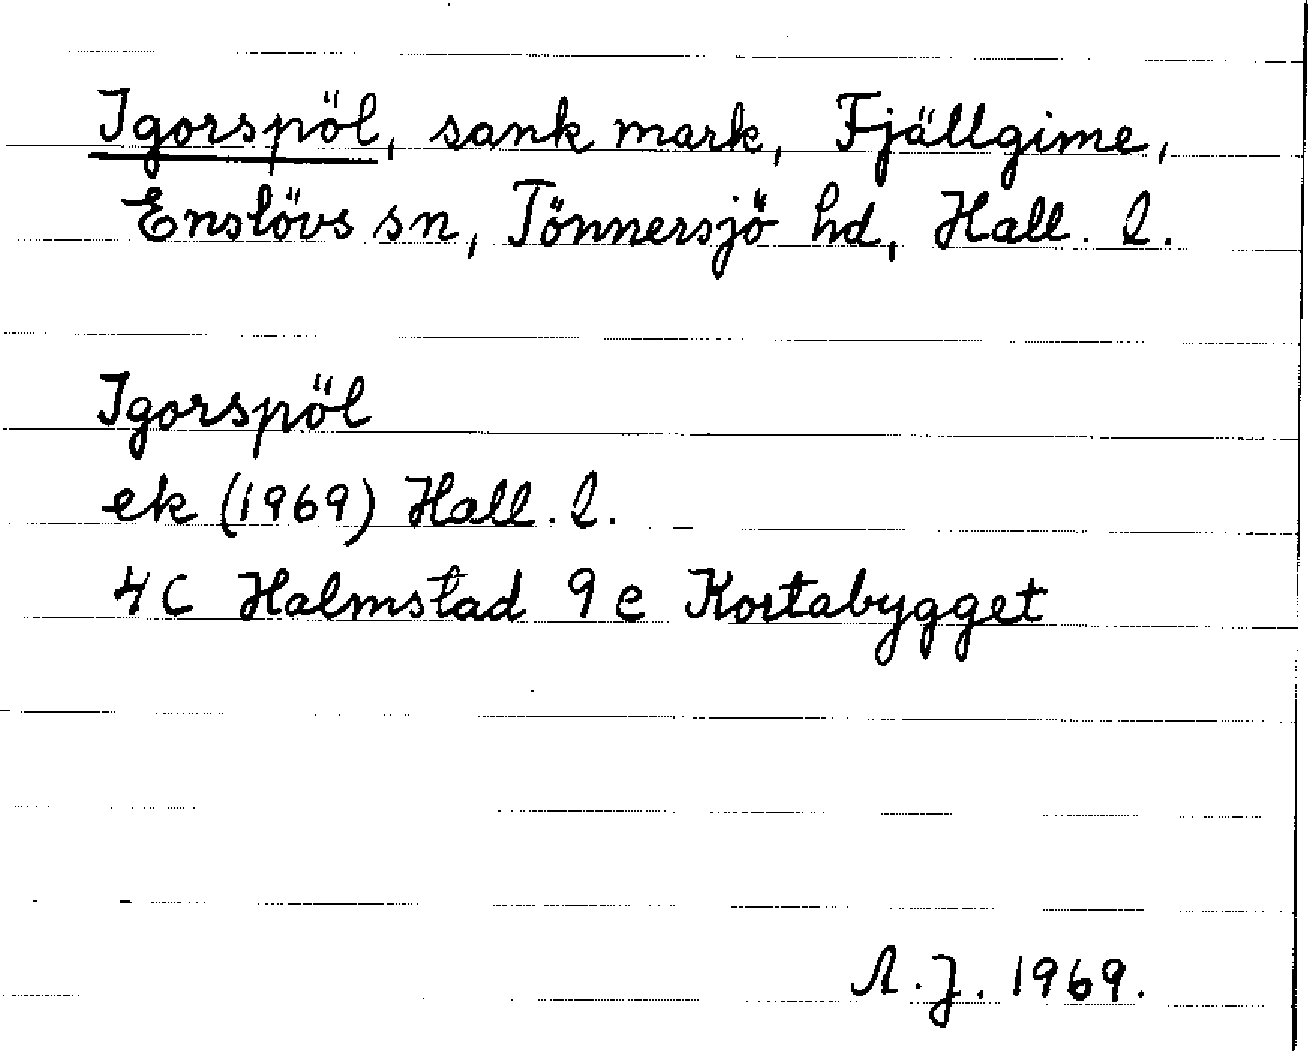 Igorspöl, sank mark, Fjällgime,
Enslövs sn, Tönnersjö hd, Hall. l.
Igorspöl
ek (1969) Hall. l.
4C Halmstad 9e Kortabygget
A.J. 1969.